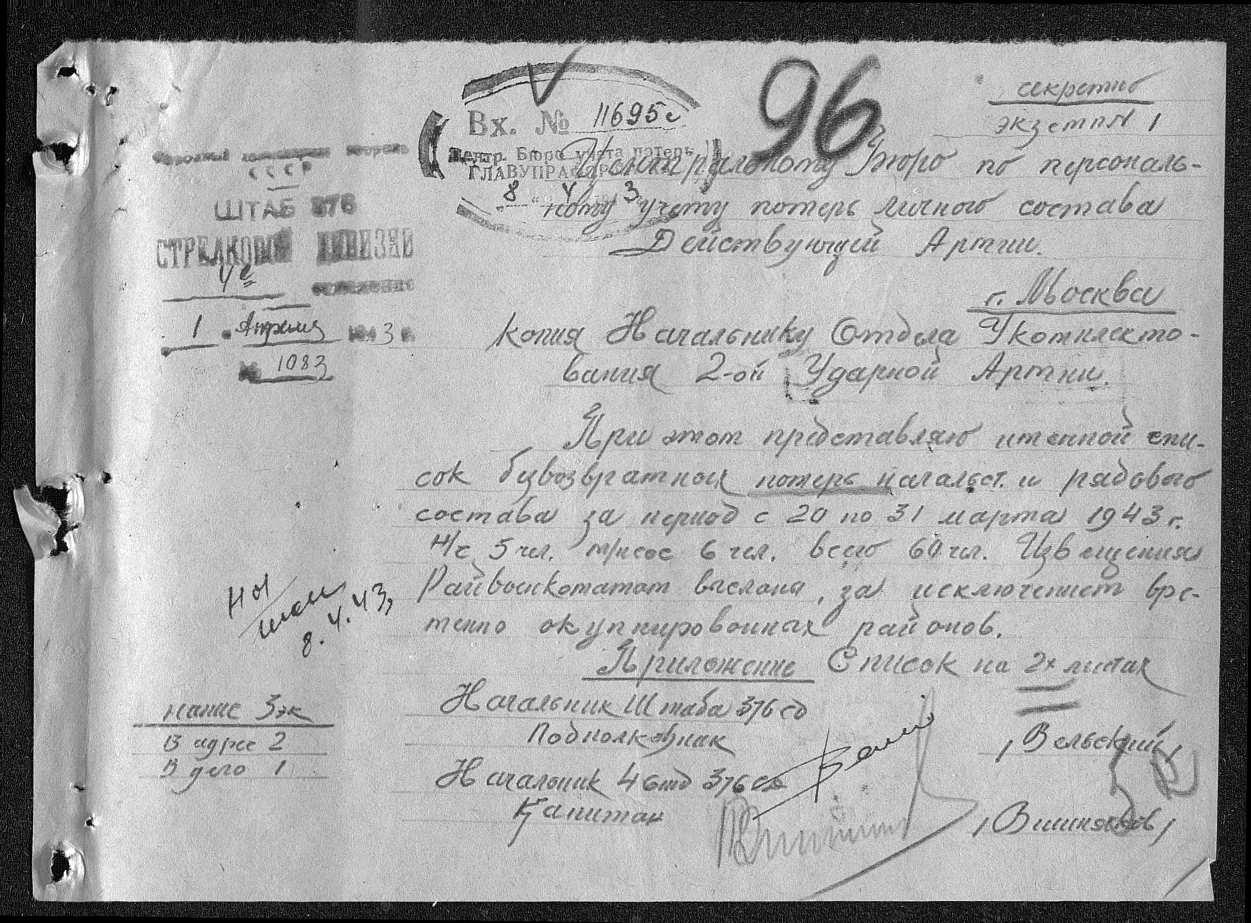 96
секретно
экземп N 1
Вх. № 11695с
Центр. Бюро учета потерь
8
3
Народный комиссариат обороны
СССР
ШТАБ 376
СТРЕЛКОВОЙ ДИВИЗИИ
4е отделение
1 Апреля 1943 г.
№ 1083
Центральному Бюро по персональ-
ному учету потерь личного состава
Действующей Армии.
г. Москва
Копия Начальнику Отдела Укомплекто-
вания 2-ой Ударной Армии.
При этом представляю именной спи-
сок безвозвратных потерь начальст. и рядового
состава за период с 20 по 31 марта 1943 г.
Н/с 5 чел. 6 чел. всего 60 чел. Извещения
Райвоенкоматам высланы, за исключением вре-
менно оккупированных районов.
Приложение Список на 2х листах
Начальник Штаба 376 сд
Подполковник /Вельский/
Начальник 4 отд 376 сд
Капитан /Вишняков/
8.4.43
напис 3 эк
В адрес 2
В дело 1